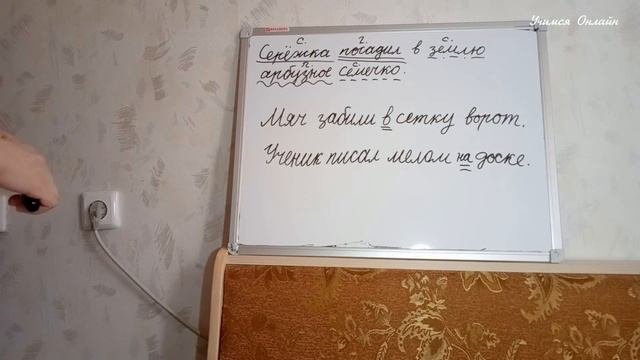 Учимся Онлайн
С. г. с.
Серёжка посадил в землю
п. с.
арбузное семечко.
Мяч забили в сетку ворот.
Ученик писал мелом на доске.